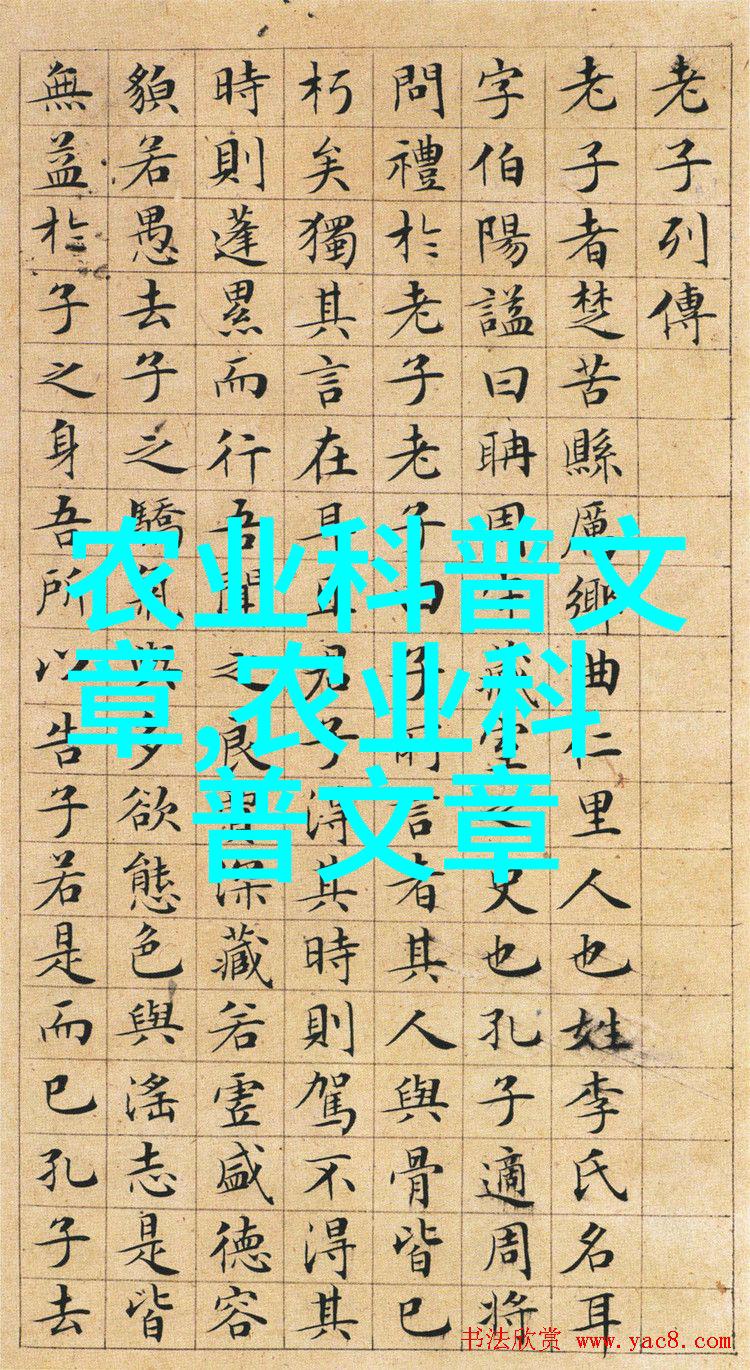 老子列傳
老子者楚苦縣厲鄉曲仁里人也姓李氏名耳
字伯陽謚曰聃周守藏室之史也孔子適周將
問禮於老子老子曰子所言者其人與骨皆已
朽矣獨其言在耳且君子得其時則駕不得其
時則蓬累而行吾聞之良賈深藏若虛盛德容
貌若愚去子之驕氣與多欲態色與淫志是皆
無益於子之身吾所以告子若是而已孔子去
农业科普文
章,农业科
普文章
书法欣赏 www.yac8.com